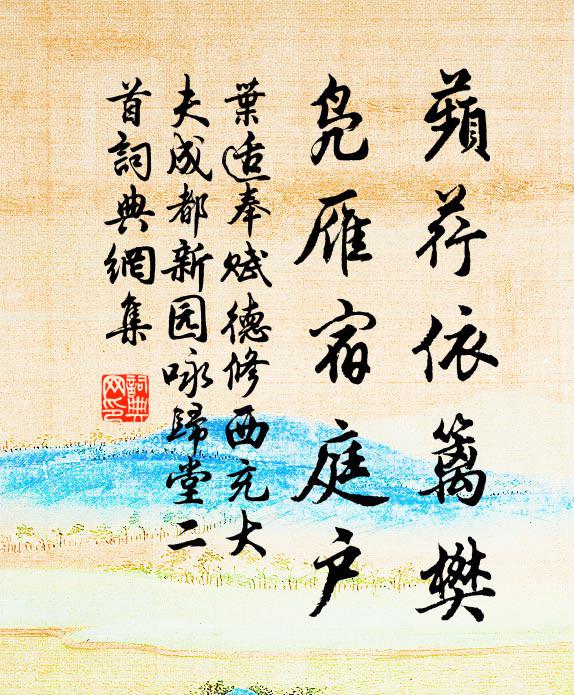 蘋荇依籬樊
鳬雁宿庭户
葉适奉赋德修西充大
夫成都新园咏歸堂二
首詞典網集
詞典网印